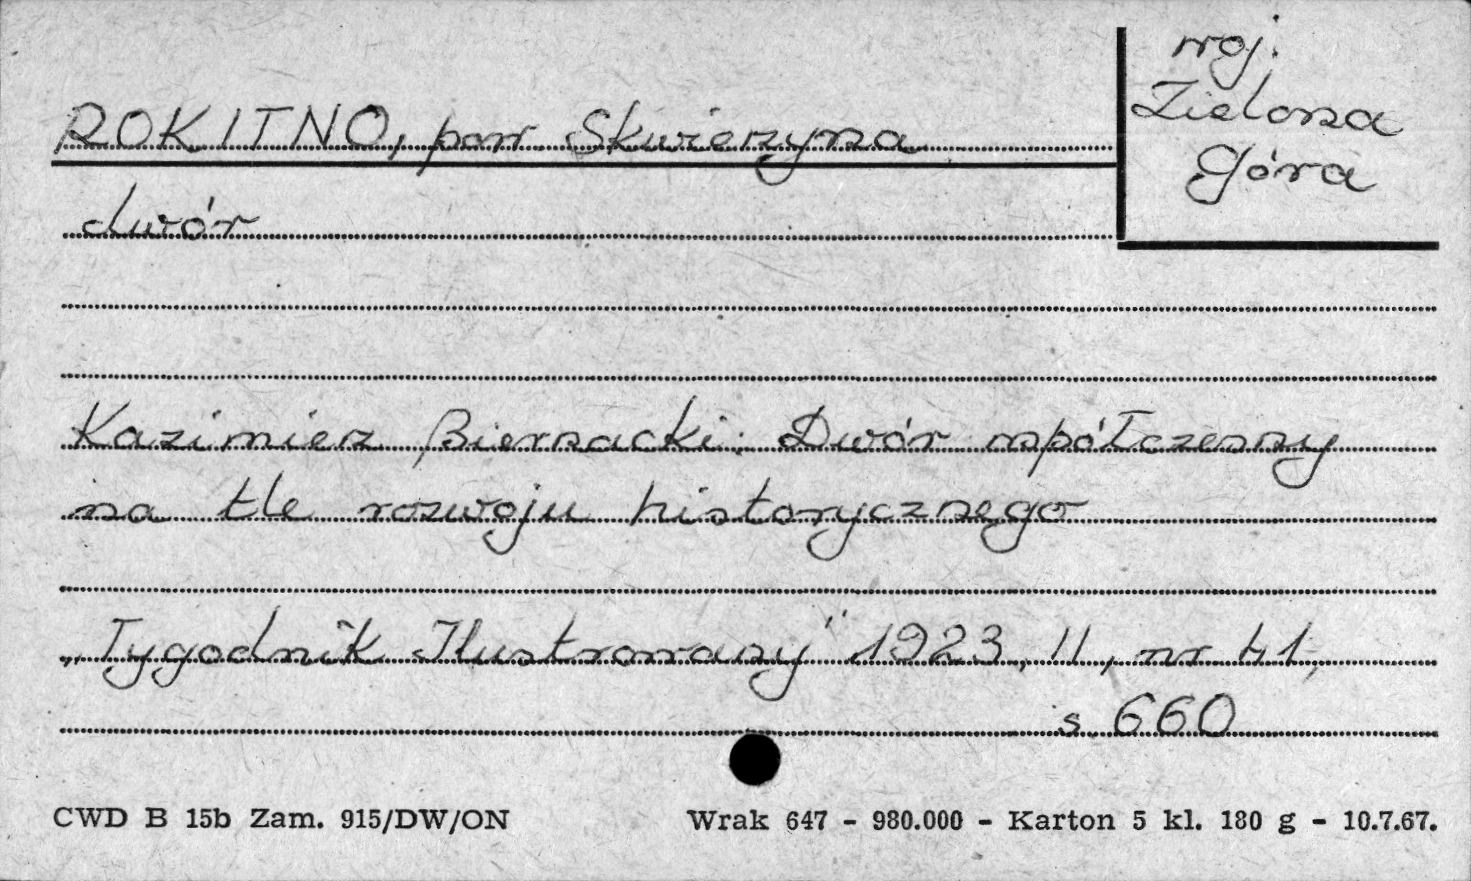 ROKITNO, pow. Skwierzyna
woj.
Zielona
Góra
dwór
Kazimierz Biernacki: Dwór współczesny
na tle rozwoju historycznego
„Tygodnik Ilustrowany" 1923, II, nr 41,
s. 660
CWD B 15b Zam. 915/DW/ON Wrak 647 - 980.000 - Karton 5 kl. 180 g - 10.7.67.